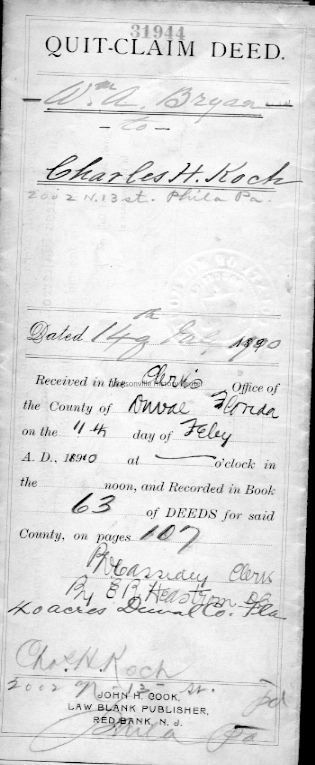 31944
QUIT-CLAIM DEED.
Wm A. Bryan
- to -
Charles H. Koch
2002 N. 13 st. Phila Pa.
Dated 14th July 1890
Received in the Clerk's Office of
the County of Duval Florida
on the 11th day of Feby
A. D., 1890 at o'clock in
the noon, and Recorded in Book
63 of DEEDS for said
County, on pages 107
Cassidey Clerk
By E R DC
40 acres Duval Co. Fla
Chas. H. Koch
2002 N 13 st.
JOHN H. COOK,
LAW BLANK PUBLISHER,
RED BANK, N. J.
Phila Pa
pd